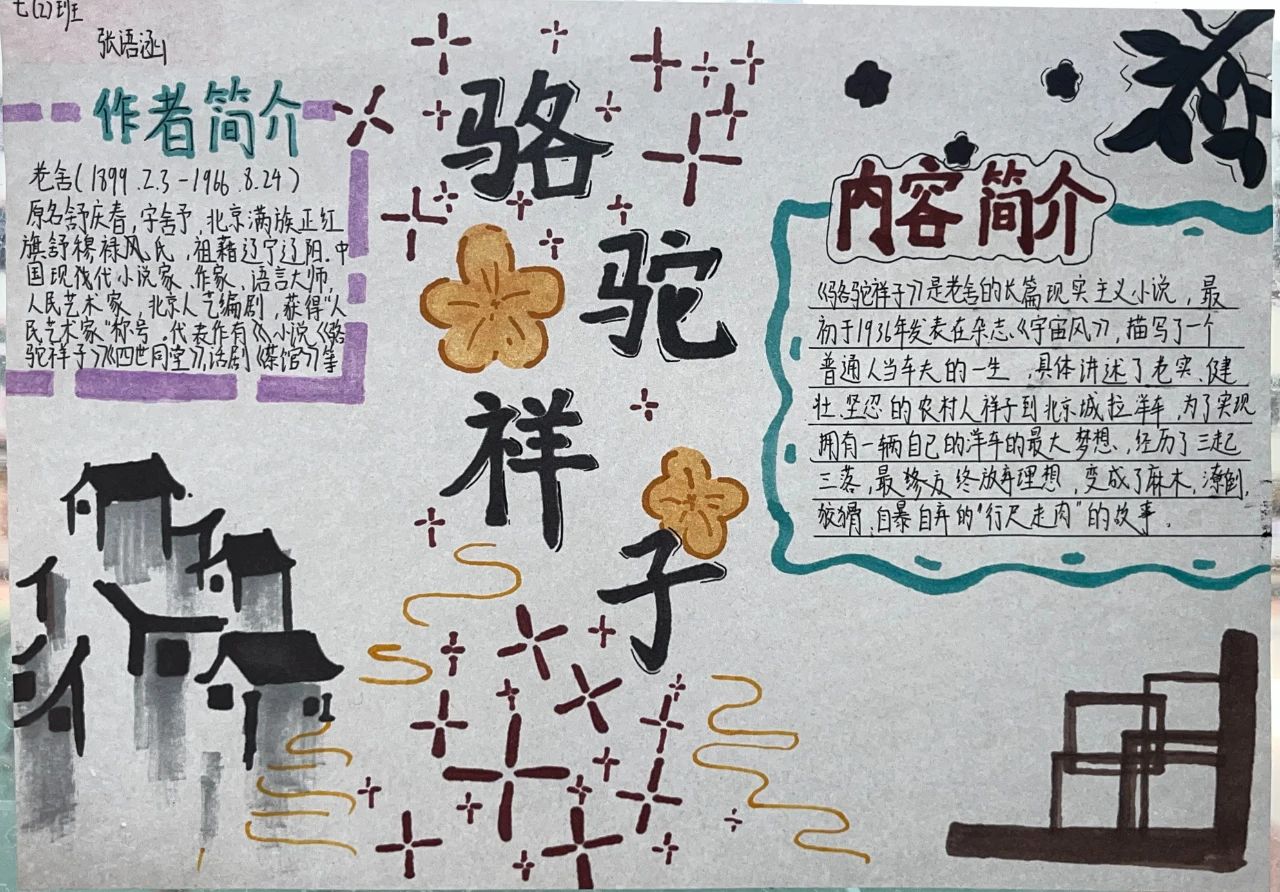 七(2)班
张语涵
作者简介
老舍(1899.2.3-1966.8.24)
原名舒庆春,字舍予,北京满族正红
旗舒穆禄风氏,祖藉辽宁辽阳.中
国现代小说家、作家、语言大师,
人民艺术家,北京人艺编剧,获得“人
民艺术家”称号。代表作有《小说《骆
驼祥子》《四世同堂》,话剧《茶馆》等
骆驼祥子
内容简介
《骆驼祥子》是老舍的长篇现实主义小说,最
初于1936年发表在杂志《宇宙风》,描写了一个
普通人当车夫的一生,具体讲述了老实、健
壮、坚忍的农村人祥子到北京城拉洋车,为了实现
拥有一辆自己的洋车的最大梦想、经历了三起
三落,最终放弃理想,变成了麻木,潦倒,
狡猾、自暴自弃的“行尸走肉”的故事。